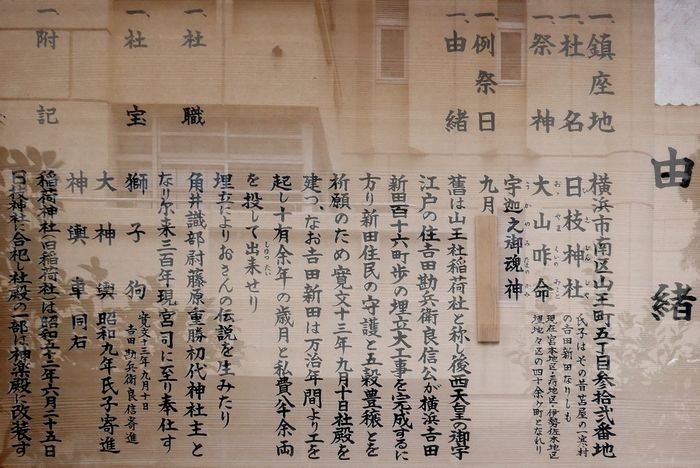 由緒
一、鎮座地 横浜市南区山王町五丁目参拾弐番地
一、社名 日枝神社
ひえじんじゃ
氏子はその昔苫屋の一寒村
の吉田新田なりしも
現在宮本地区・寿地区・伊勢佐木地区
埋地々区の四十余ヶ町となれり
一、祭神 大山咋命
おおやまくいのみこと
宇迦之御魂神
うかのみたまのかみ
一、例祭日 九月
一、由緒 舊は山王社稲荷社と称し後西天皇の御宇
江戸の住吉田勘兵衛良信公が横浜吉田
新田百十六町歩の埋立大工事を完成するに
方り新田住民の守護と五穀豊穣とを
祈願のため寛文十三年九月十日社殿を
建つ、なお吉田新田は万治年間より工を
起し十有余年の歳月と私費八千余両
を投して出来せり
埋立によりおさんの伝説を生みたり
一、社職 角井式部尉藤原重勝初代神社主と
なり尓来三百年現宮司に至り奉仕す
一、社宝 獅子狗 寛文十三年九月十日
吉田勘兵衛良信寄進
大神輿 昭和九年氏子寄進
神輿車 同右
一、附記 稲荷神社(旧稲荷社)は昭和二十三年六月二十五日
日枝神社に合祀し社殿の一部は神楽殿に改装す